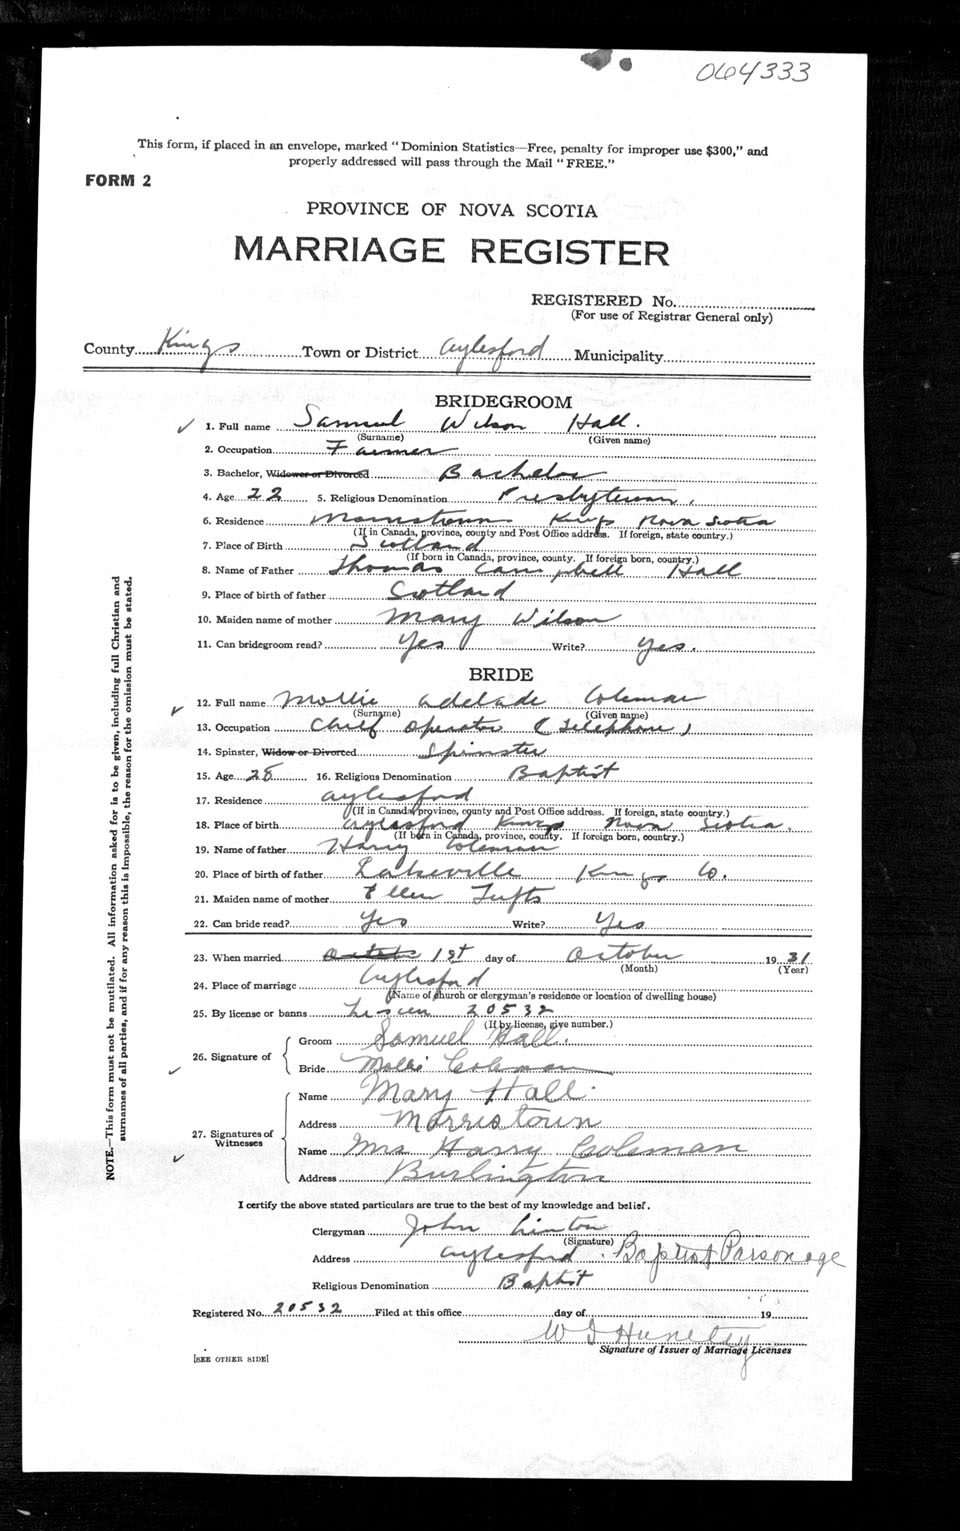 064333
This form, if placed in an envelope, marked "Dominion Statistics—Free, penalty for improper use $300," and
properly addressed will pass through the Mail "FREE."
FORM 2
PROVINCE OF NOVA SCOTIA
MARRIAGE REGISTER
REGISTERED No.
(For use of Registrar General only)
County Kings Town or District Aylesford Municipality
BRIDEGROOM
1. Full name Samuel Wilson Hall.
(Surname) (Given name)
2. Occupation Farmer
3. Bachelor, Widower or Divorced Bachelor
4. Age 22 5. Religious Denomination Presbyterian.
6. Residence Morristown Kings Nova Scotia
(If in Canada, province, county and Post Office address. If foreign, state country.)
7. Place of Birth Scotland
(If born in Canada, province, county. If foreign born, country.)
8. Name of Father Thomas Campbell Hall
9. Place of birth of father Scotland
10. Maiden name of mother Mary Wilson
11. Can bridegroom read? Yes Write? Yes.
BRIDE
12. Full name Mollie Adelade Coleman
(Surname) (Given name)
13. Occupation Chief Operator (Telephone)
14. Spinster, Widow or Divorced Spinster
15. Age 28 16. Religious Denomination Baptist
17. Residence Aylesford
(If in Canada, province, county and Post Office address. If foreign, state country.)
18. Place of birth Aylesford Kings Nova Scotia.
(If born in Canada, province, county. If foreign born, country.)
19. Name of father Harry Coleman
20. Place of birth of father Lakeville Kings Co.
21. Maiden name of mother Ellen Tufts
22. Can bride read? Yes Write? Yes
23. When married October 1st day of October 1931
(Month) (Year)
24. Place of marriage Aylesford
(Name of church or clergyman's residence or location of dwelling house)
25. By license or banns 20532
(If by license, give number.)
26. Signature of
Groom Samuel Hall.
Bride Mollie Coleman
27. Signatures of Witnesses
Name Mary Hall
Address Morristown
Name Mrs. Harry Coleman
Address Burlington
I certify the above stated particulars are true to the best of my knowledge and belief.
Clergyman John Linton
(Signature)
Address Aylesford. Baptist Parsonage
Religious Denomination Baptist
Registered No. 20532 Filed at this office day of 19
Signature of Issuer of Marriage Licenses
[SEE OTHER SIDE]
NOTE.—This form must not be mutilated. All information asked for is to be given, including full Christian and
surnames of all parties, and if for any reason this is impossible, the reason for the omission must be stated.